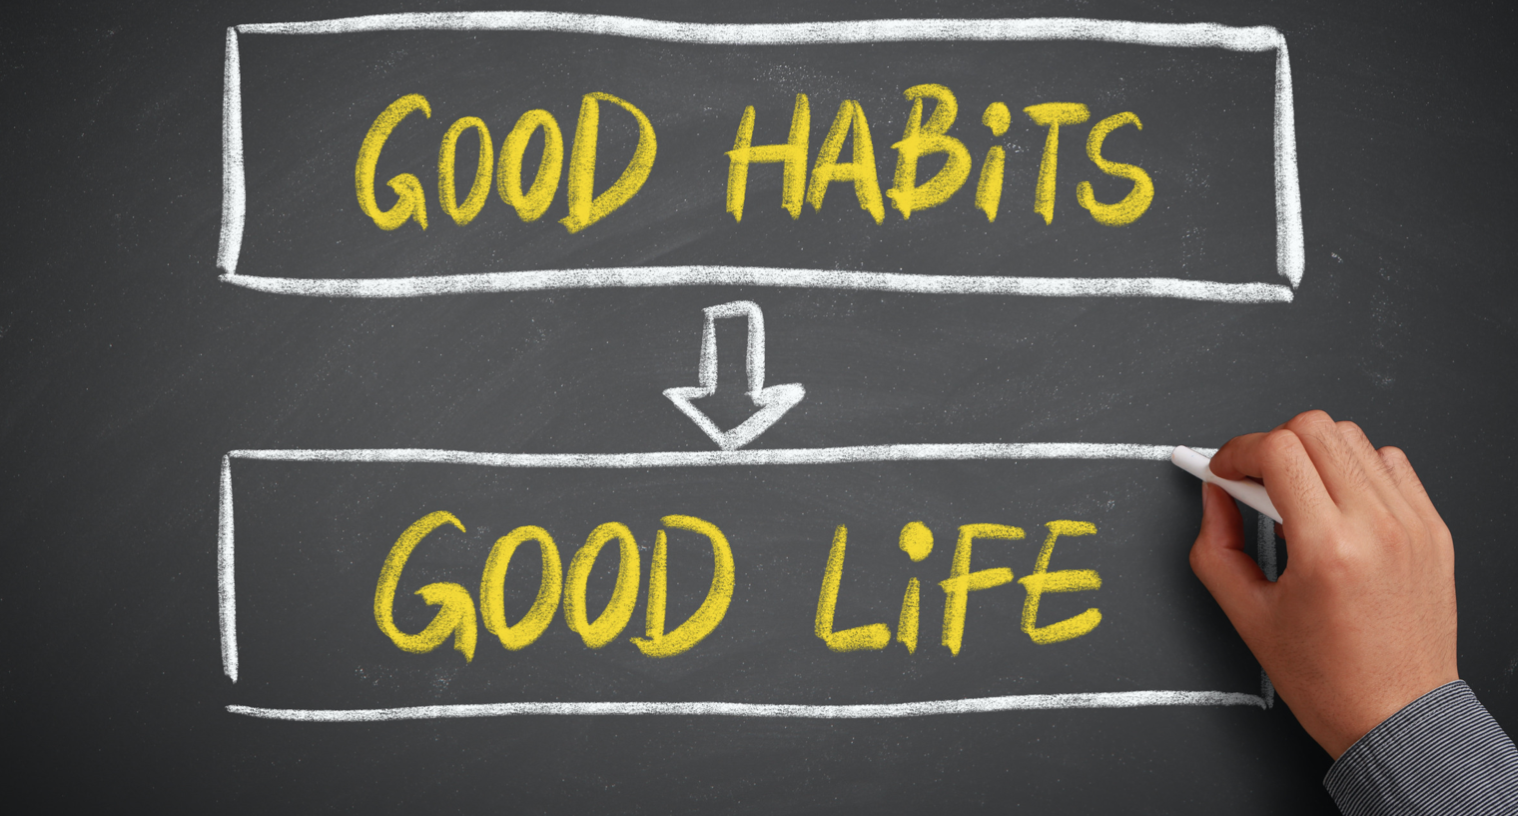 GOOD HABiTS
GOOD LiFE